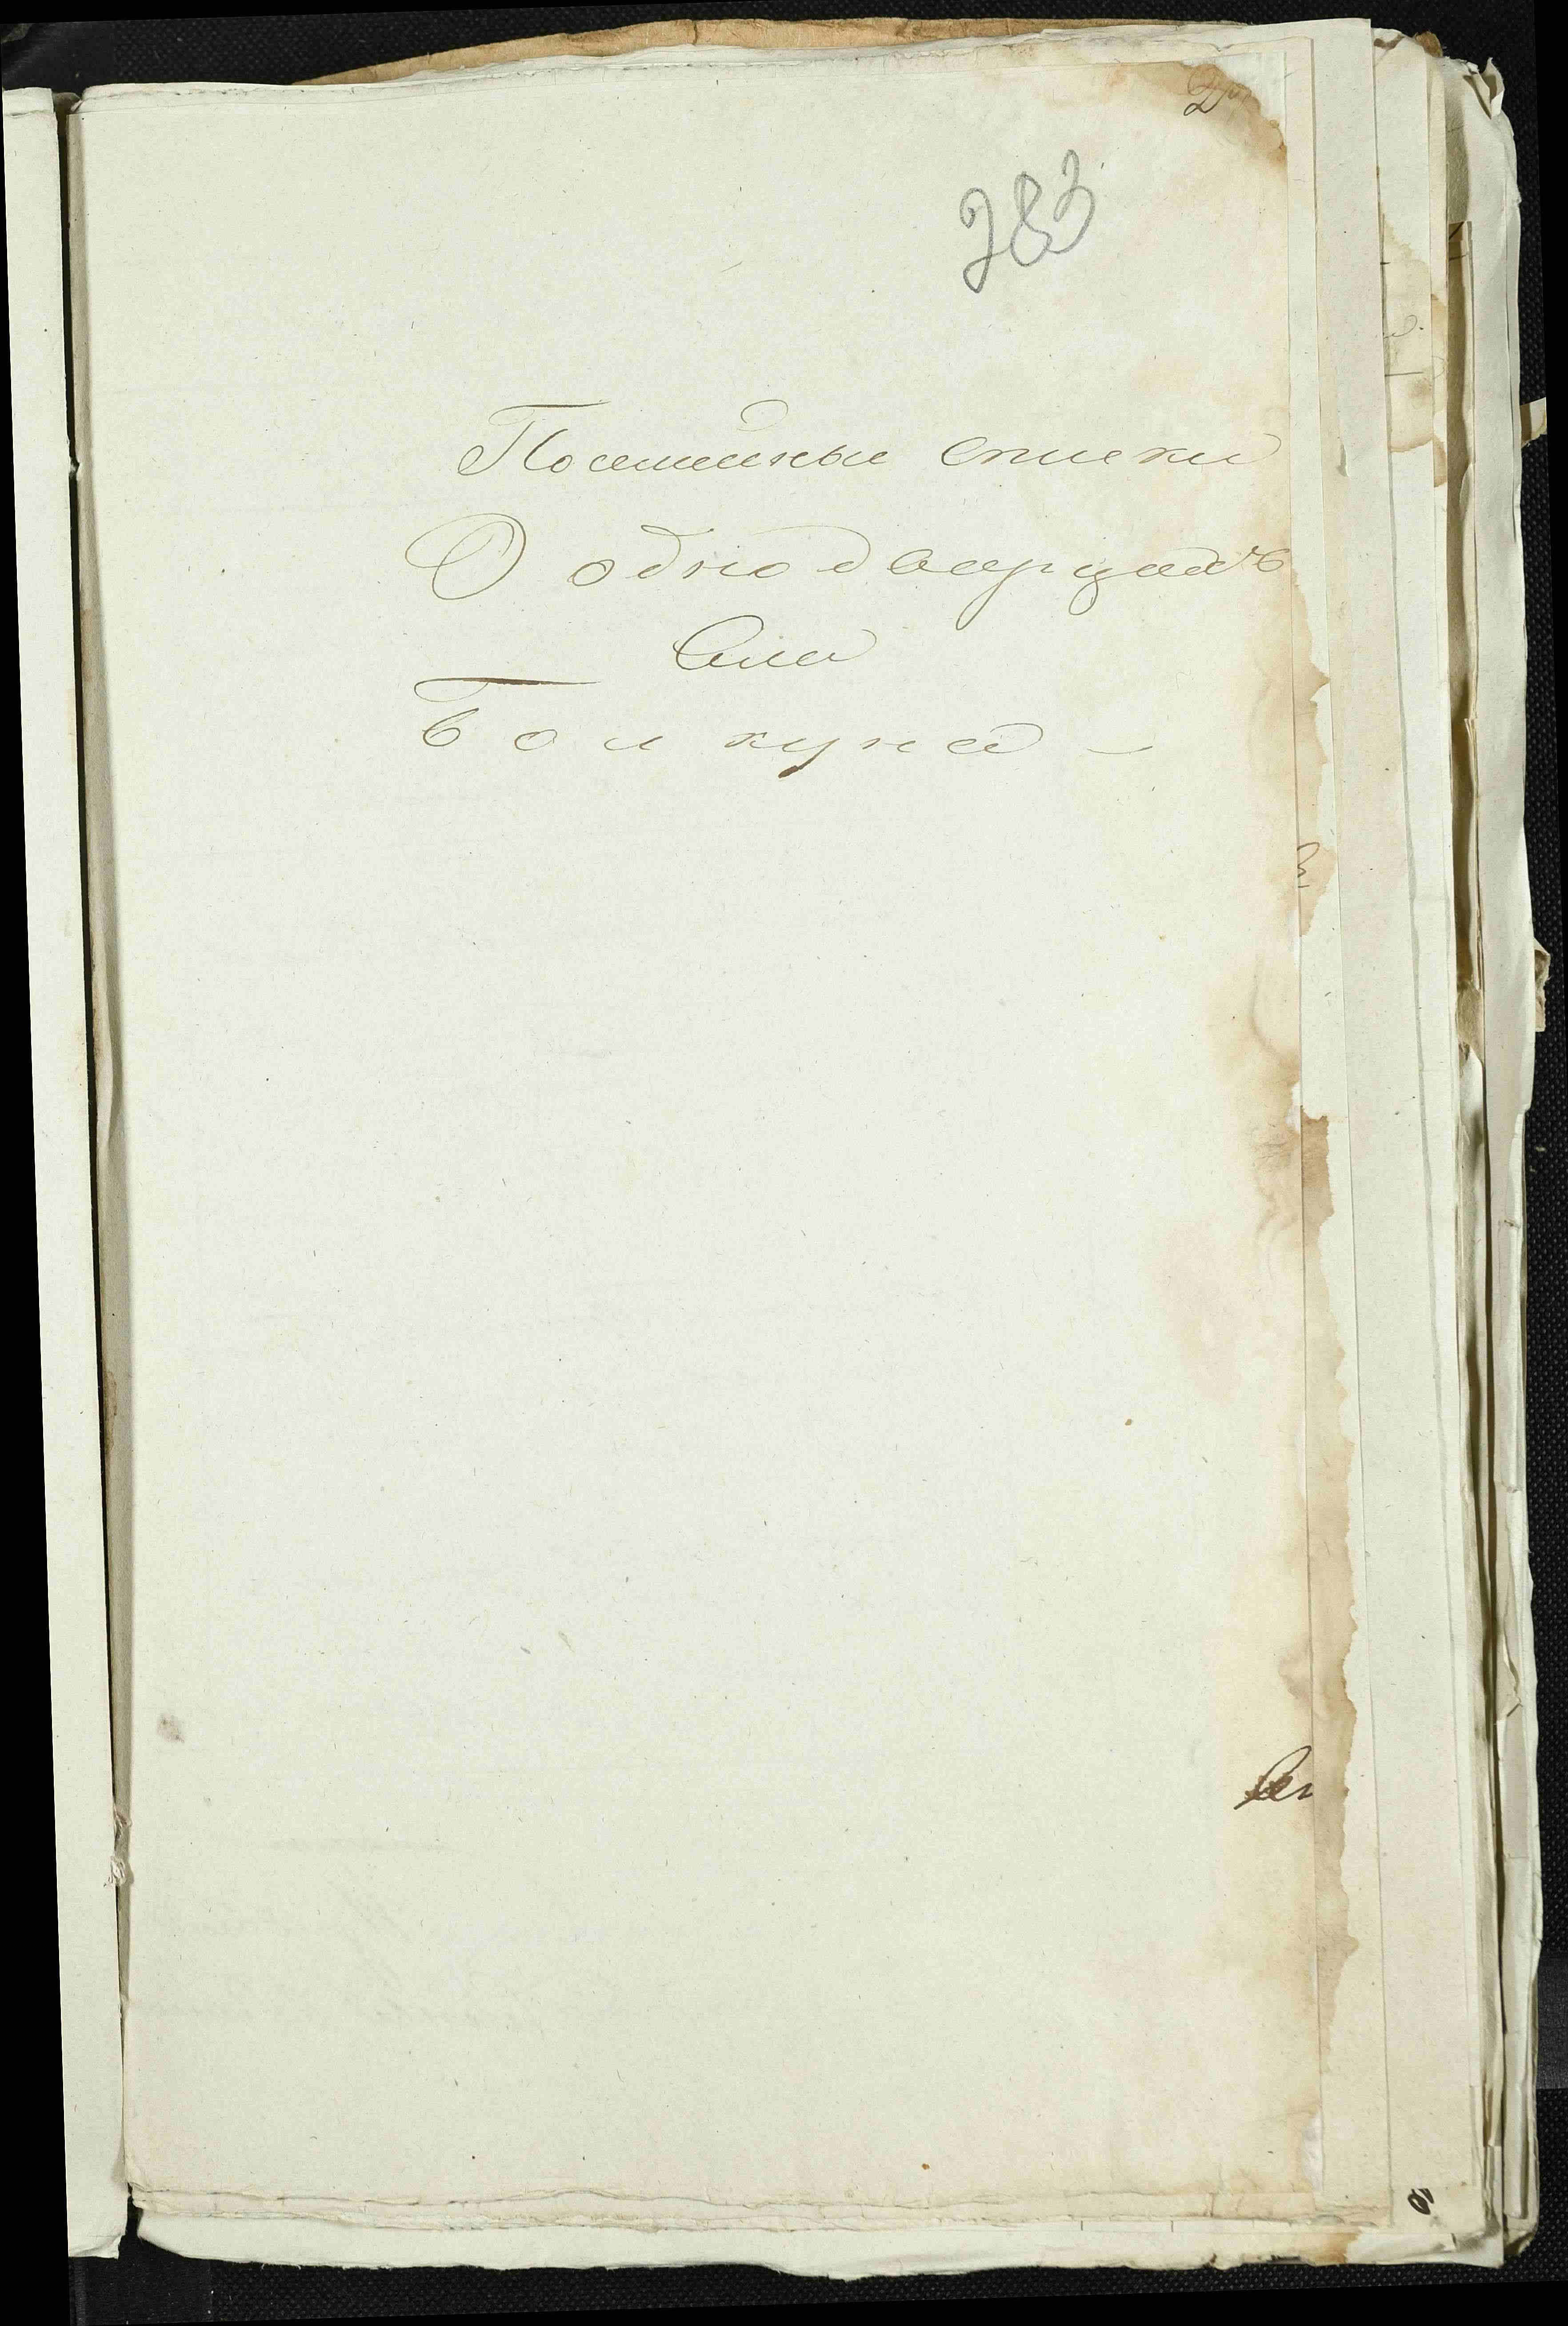 283
Посемейные списки
О однодварцахъ
Села
Болкуна -